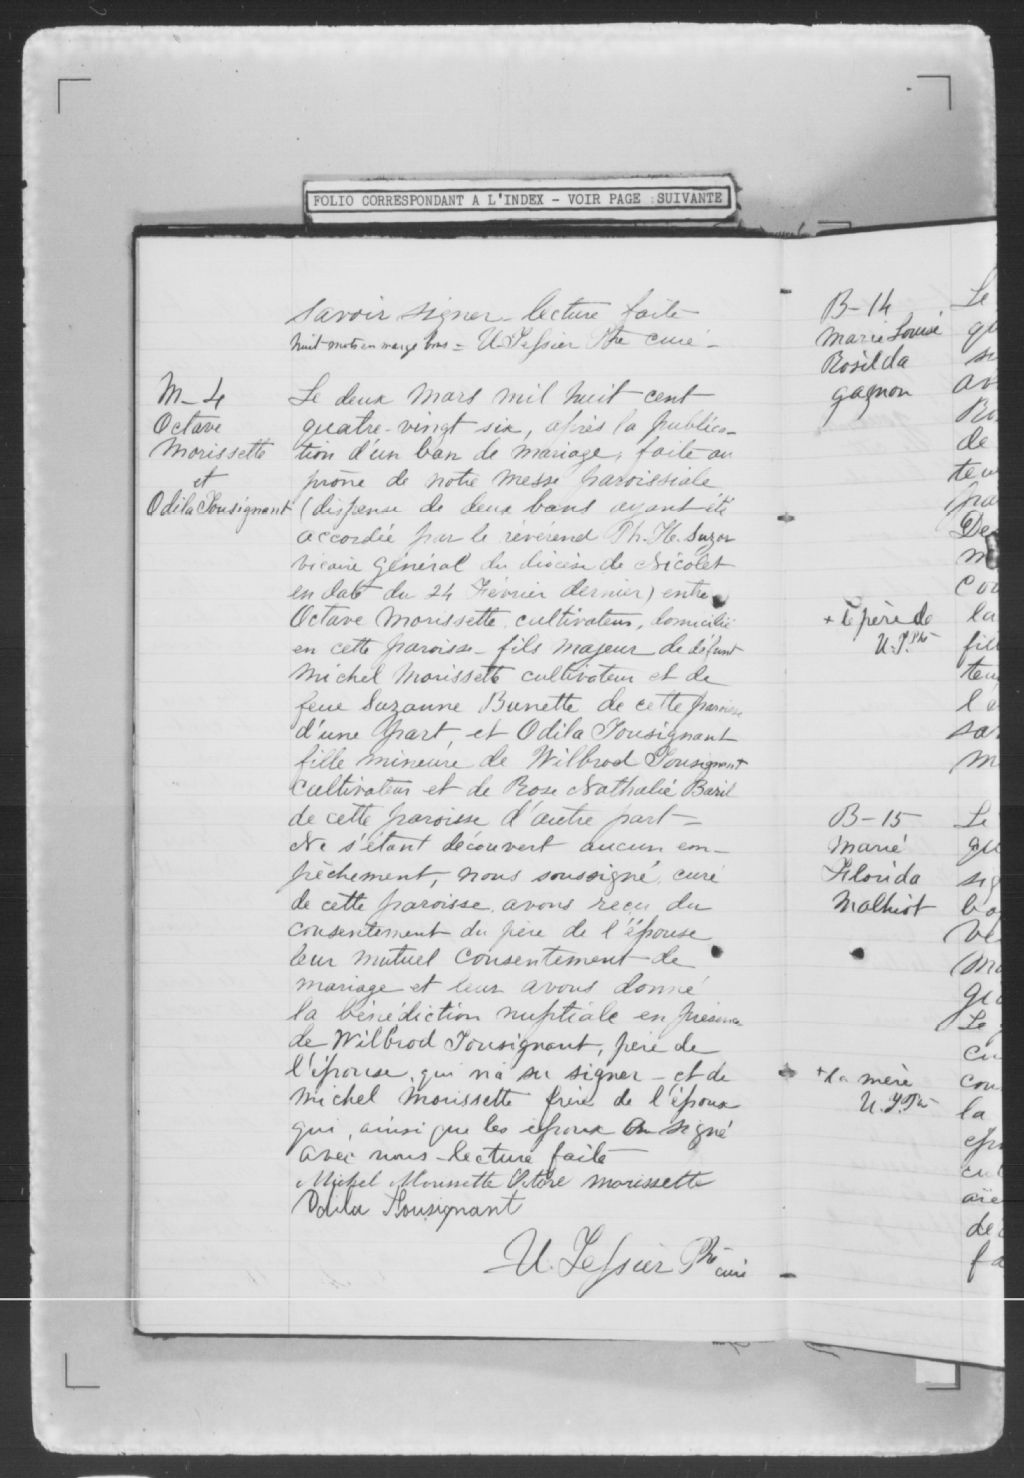 FOLIO CORRESPONDANT A L'INDEX - VOIR PAGE SUIVANTE
savoir signer - lecture faite
huit mots en marge bons = U. Tessier Ptre curé -
M-4
Octave
Morissette
et
Odila Tousignant
Le deux Mars mil huit cent
quatre-vingt six, après la publica-
tion d'un ban de mariage, faite au
prône de notre messe paroissiale
(dispense de deux bans ayant été
accordée par le révérend Ph. H. Suzor
vicaire général du diocèse de Nicolet
en date du 24 Février dernier) entre
Octave Morissette, cultivateur, domicilié
en cette paroisse - fils majeur de défunt
Michel Morissette cultivateur et de
feue Suzanne Brunette de cette paroisse
d'une part, et Odila Tousignant
fille mineure de Wilbrod Tousignant
cultivateur et de Rose Nathalie Baril
de cette paroisse d'autre part -
Ne s'étant découvert aucun em-
pêchement, nous soussigné, curé
de cette paroisse, avons reçu du
consentement du père de l'épouse
leur mutuel consentement de
mariage et leur avons donné
la bénédiction nuptiale en présence
de Wilbrod Tousignant, père de
l'épouse, qui n'a su signer - et de
Michel Morissette frère de l'époux
qui, ainsi que les époux on signé
avec nous - lecture faite
Michel Morissette Octave morissette
Odila Tousignant
U. Tessier Ptre
curé
B-14
Marie Louise
Rosilda
gagnon
+ le père de
U. T. Ptre
B-15
Marie
Florida
Malhiot
+ la mère
U. T. Ptre
Le
de
la
Le
Le
la